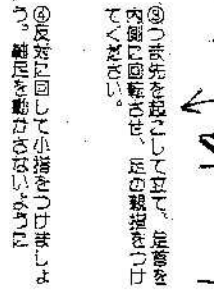 ③つま先を起こして立て、足首を
内側に回転させ、足の親指をつけ
てください。
④反対に回して小指をつけましょ
う。軸足を動かさないように